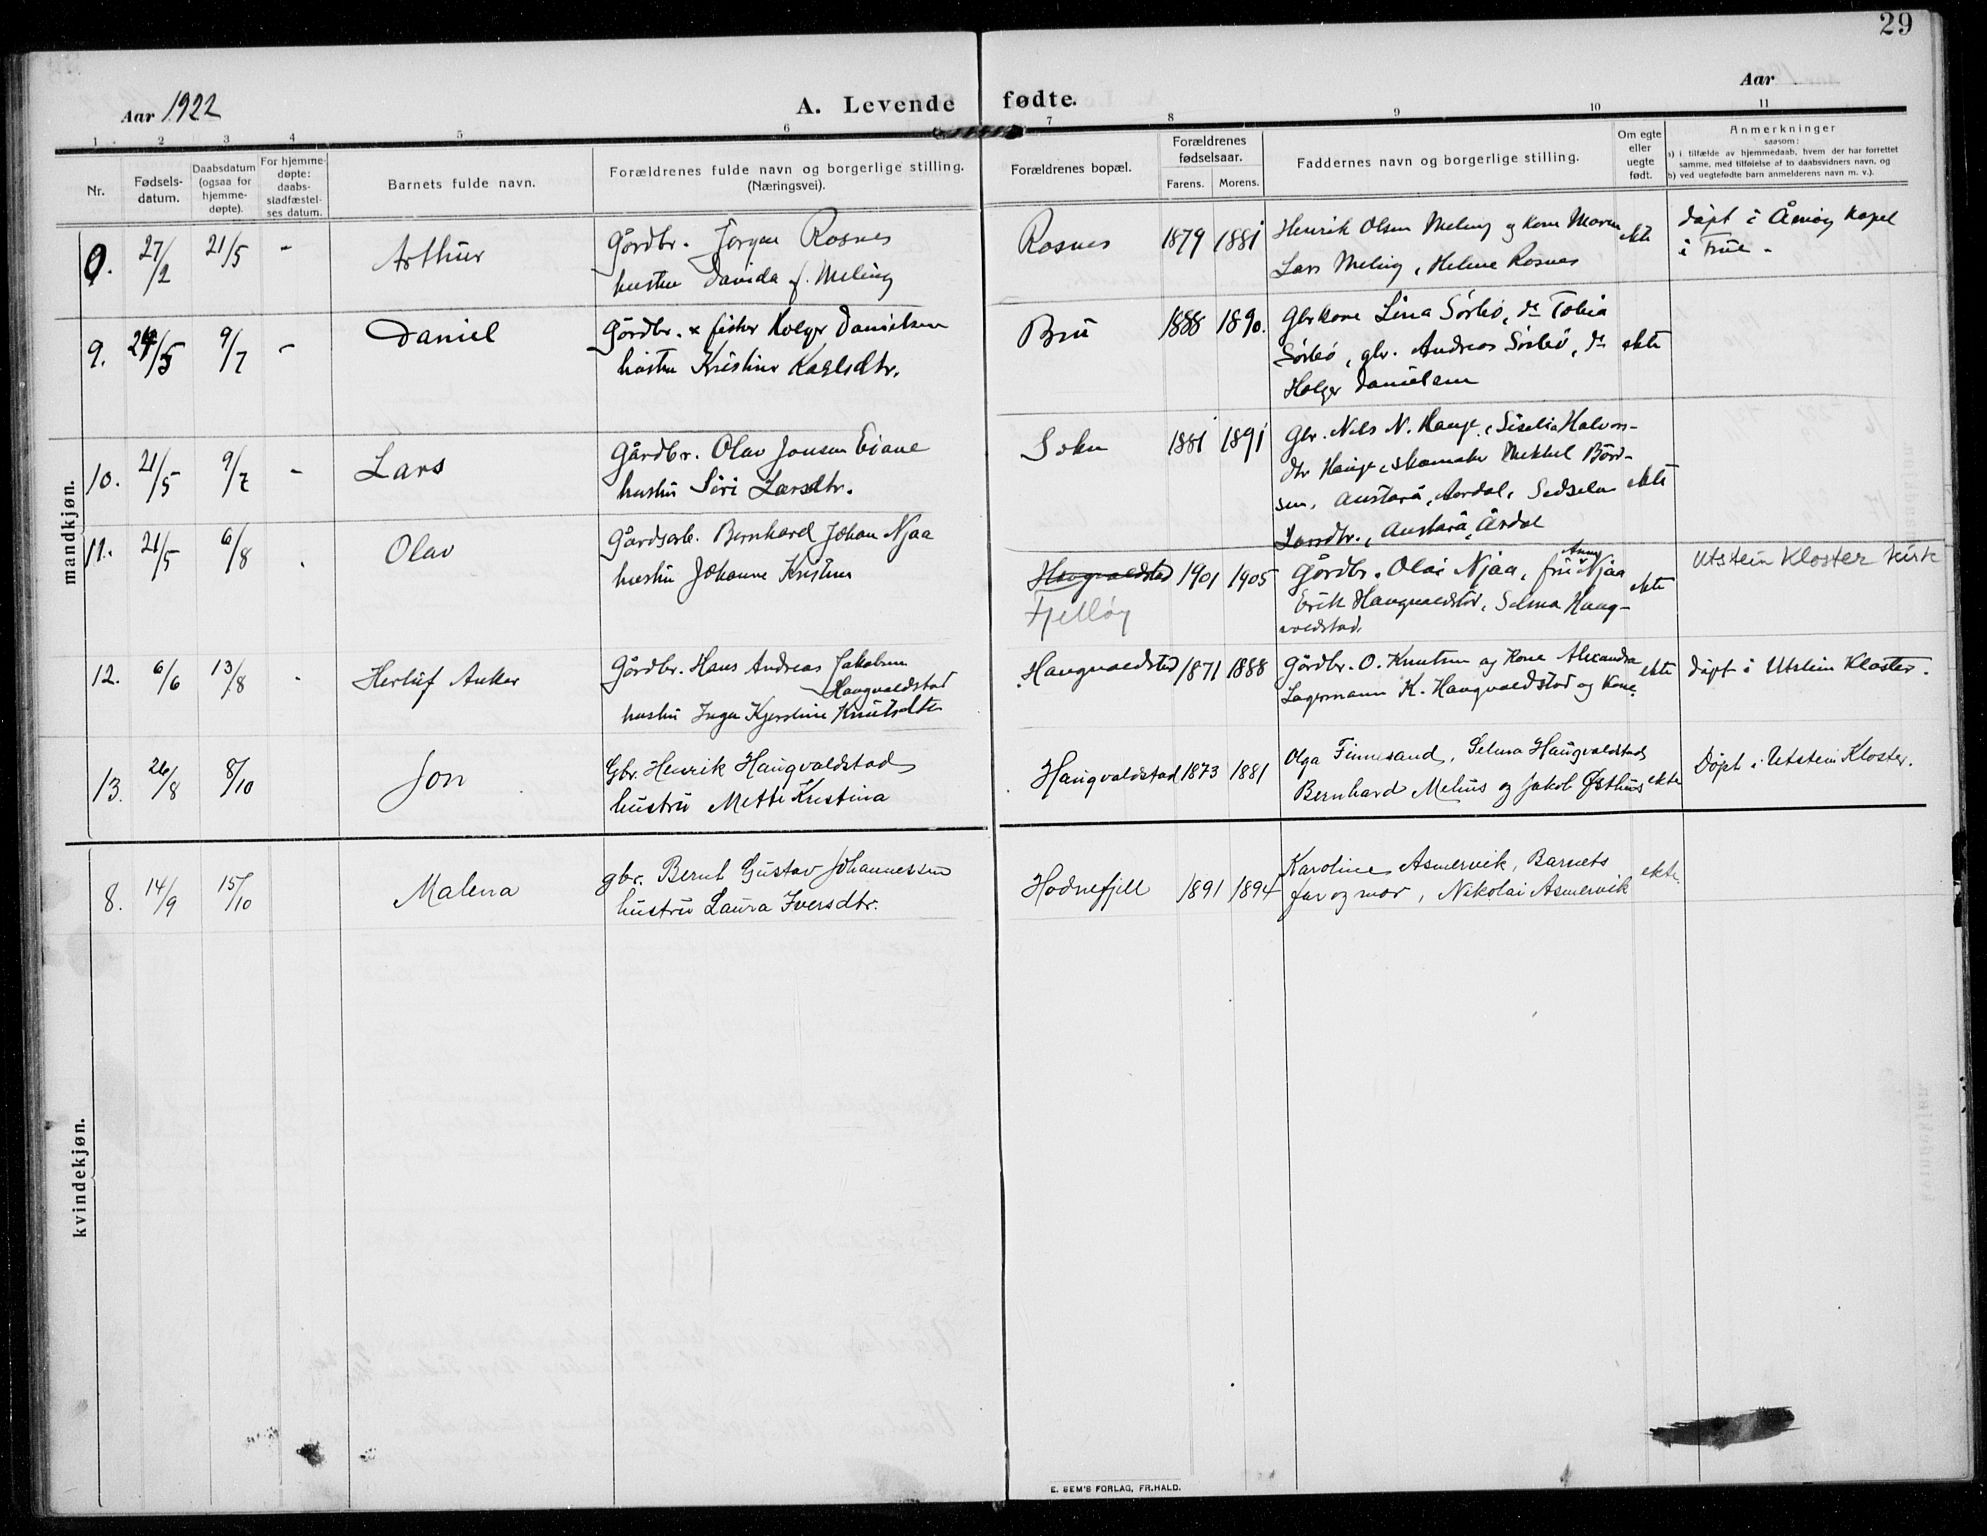 29
Aar 1922
A. Levende fødte.
Aar
1 2 3 4 5 6 7 8 9 10 11
Nr.
Fødsels-
datum.
Daabsdatum
(ogsaa for
hjemme-
døpte).
For hjemme-
døpte:
daabs-
stadfæstel-
ses datum.
Barnets fulde navn.
Forældrenes fulde navn og borgerlige stilling.
(Næringsvei).
Forældrenes bopæl.
Forældrenes
fødselsaar.
Farens. Morens.
Faddernes navn og borgerlige stilling.
Om egte
eller
uegte
født.
Anmerkninger
saasom:
a) i tilfælde av hjemmedaab, hvem der har forrettet
samme, med tilføielse af to daabsvidners navn, og
b) ved uegtefødte barn anmelderens navn m. v.).
mandkjøn.
0. 27/2 21/5 - Arthur
Gårdbr. Jørgen Rosnes
hustru Davida f. Meling
Rosnes 1879 1881
Henrik Olsen Meling og kone Maren
Lars Meling, Helene Rosnes
ekte
døpt i Åmøy kapel
i Frue -
9. 24/5 9/7 - Daniel
Gårdbr. & fisker Holger Danielsen
hustru Kristine Karlsdtr.
Bru 1888 1890.
Gbrkone Lina Sørbø, do Tobia
Sørbø, gbr. Andreas Sørbø, do
Holger Danielsen
ekte
10. 21/5 9/7 - Lars
Gårdbr. Olav Jonsen Eiane
hustru Siri Larsdtr.
Sokn 1881 1891
Gbr. Nils N. Hauge, Siselia Halvors-
dtr Hauge, skomaker Mikkel Bård-
sen, Austarå, Aardal, Sedselee
Larsdtr., Austarå, Årdal
ekte
11. 21/5 6/8 . Olav
Gårdsarb. Bernhard Johan Njaa
hustru Johanne Kristine
Haugvaldstad
Fjelløy
1901 1905
Gårdbr. Olai Njaa, frue Anny Njaa
Erik Haugvaldstad, Selma Haug-
valdstad.
ekte
Utstein Kloster kirk
12. 6/6 13/8 . Herluf Anker
Gårdbr. Hans Andreas Jakobsen
Haugvaldstad
hustru Inga Kjerstine Knutsdtr
Haugvaldstad 1871 1888
Gårdbr. O. Knutsen og Kone Alexandra
Lagesmann K. Haugvaldstad og Kone
ekte
døpt i Utstein Kloster.
13. 26/8 8/10 Jon
Gbr. Henrik Haugvaldstad
hustru Mette Kristina
Haugvaldstad 1873 1881
Olga Finnesand, Selma Haugvaldstad
Bernhard Melhus og Jakob Østhus
ekte
Døpt i Utstein Kloster.
kvindekjøn.
8. 14/9 15/10 Malena
gbr. Bernt Gustav Johannessen
hustru Laura Iversdtr.
Hodnefjell 1891 1894
Karoline Asmervik, Barnets
far og mor, Nikolai Asmervik
ekte.
E. SEM'S FORLAG, FR.HALD.